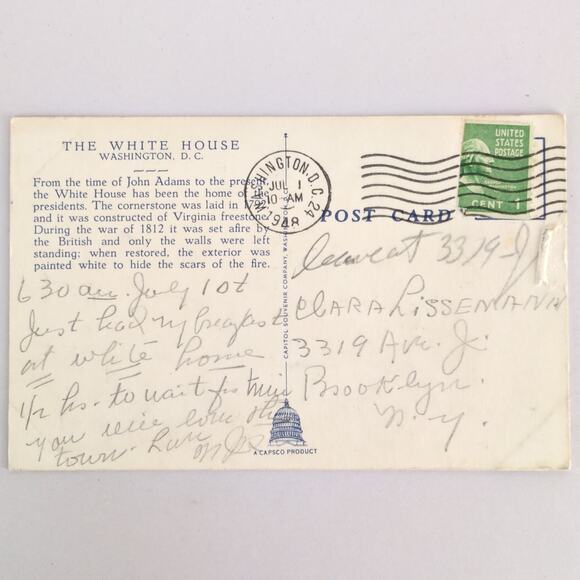 THE WHITE HOUSE
WASHINGTON, D. C.
From the time of John Adams to the present
the White House has been the home of the
presidents. The cornerstone was laid in 1792
and it was constructed of Virginia freestone.
During the war of 1812 it was set afire by
the British and only the walls were left
standing; when restored, the exterior was
painted white to hide the scars of the fire.
6 30 am. July 1st
Just had my breakfast
at white home
1/2 hs. to wait for
you love this
town.
WASHINGTON, D.C. 24
JUL 1
10 AM
1948
CAPITOL SOUVENIR COMPANY, WASHINGTON
A CAPSCO PRODUCT
UNITED
STATES
POSTAGE
CENT 1
POST CARD
3319 J
CLARA LISSEMANN
3319 Ave. J.
Brooklyn.
N. Y.